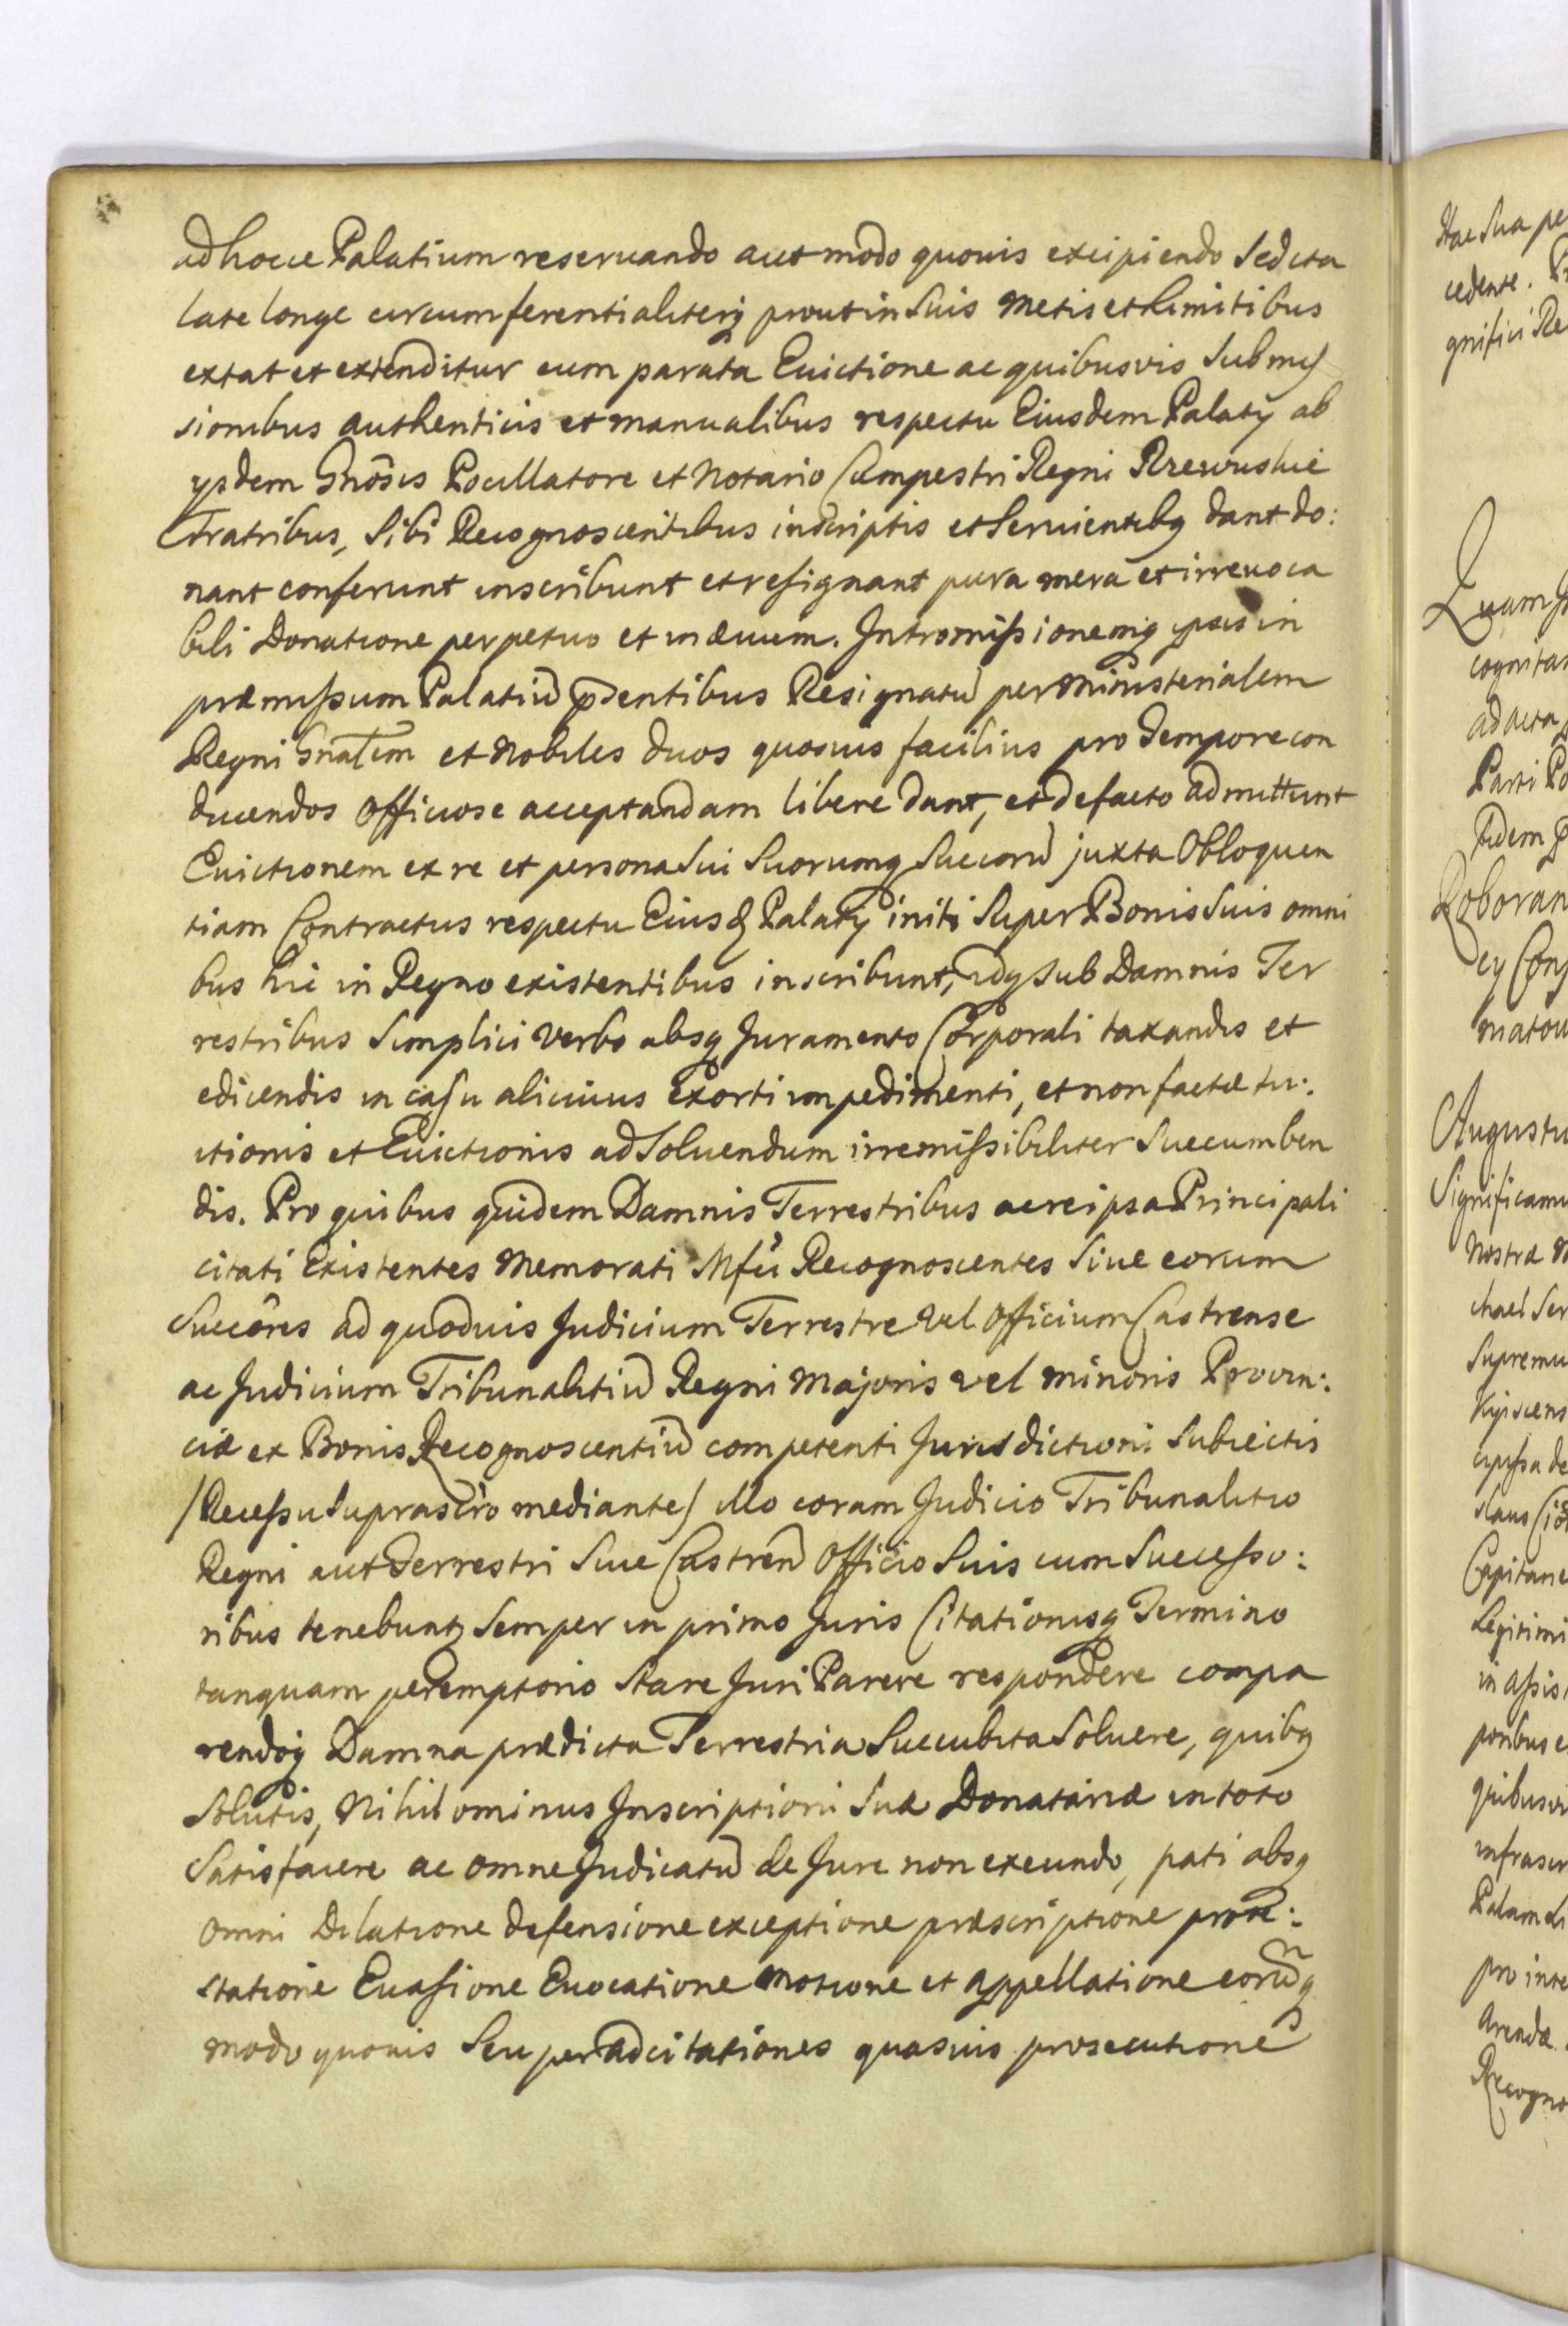 ad hocce Palatium reservando aut modo quovis excipiendo Sed ita
late longe circumferentialiterq3 prout in Suis Metis et Limitibus
extat et extenditur cum parata Evictione ac quibusvis Submis
sionibus authenticis et manualibus respectu Eiusdem Palatÿ ab
ysdem Gnôsis Pocillatore et Notario Campestri Regni Rzewuskie
Fratribus, Sibi Recognoscentibus inscriptis et Servientibq dant do:
nant conferunt inscribunt et resignant pura mera et irrevoca
bili Donatione perpetuo et in ævum. Intromissionemq3 ipsis in
præmissum Palatiũ p̃sentibus Resignatũ per Ministerialem
Regni Gnãlem et Nobiles duos quosvis facilius pro Tempore con
ducendos Officiose acceptandam libere dant, et de facto admittunt
Evictionem ex re et persona Sui Suorumq3 Succorũ juxta Obloquen
tiam Contractus respectu Eiusd Palatÿ initi Super Bonis Suis omni
bus hic in Regno existentibus inscribunt, idq3 sub Damnis Ter
restribus Simplici Verbo absq3 Juramento Corporali taxandis et
edicendis in casu alicuius Exorti impedimenti, et non factæ tu:
itionis et Evictionis ad Solvendum irremissibiliter Succumben
dis. Pro quibus quidem Damnis Terrestribus ac re ipsa Principali
citati Existentes Memorati Mfci Recognoscentes Sive eorum
Succôres ad quodvis Judicium Terrestre Vel Officium Castrense
ac Judicium Tribunalitiũ Regni Majoris vel minoris Provin:
ciæ ex Bonis Recognoscentiũ competenti Jurisdictioni Subiectis
/Recessu Suprascr̂o mediante/ Illo coram Judicio Tribunalitio
Regni aut Terrestri Sive Castren̄ Officio Suis cum Successo:
ribus tenebunt3 Semper in primo Juris Citationisq3 Termino
tanquam peremptorio Stare Juri Parere respondere compa
rendoq3 Damna prædicta Terrestria Succubita Solvere, quibq
Solutis, Nihilominus Inscriptioni Suæ Donatariæ in toto
Satisfacere ac omne Judicatũ de Jure non exeundo, pati absq3
omni Dilatione defensione exceptione præscriptione
statione Evasione Evocatione Motione et Appellatione eorũq3
modo quovis Seu per adcitationes quasvis prosecutione
Hac Sua pe
cedente.
gnifici Re
Quam
cognitam
ad acta
Parti Po
fidem
Roboran
cy Cons
matou
Augustu
Significamu
Nostræ
chael Ser
Supremu
Kijoviens
ipsa de
Capitane
Legitimi
in Assis
quibusvi
infrascr
Palam Li
pro inte
Arendæ
Recogno